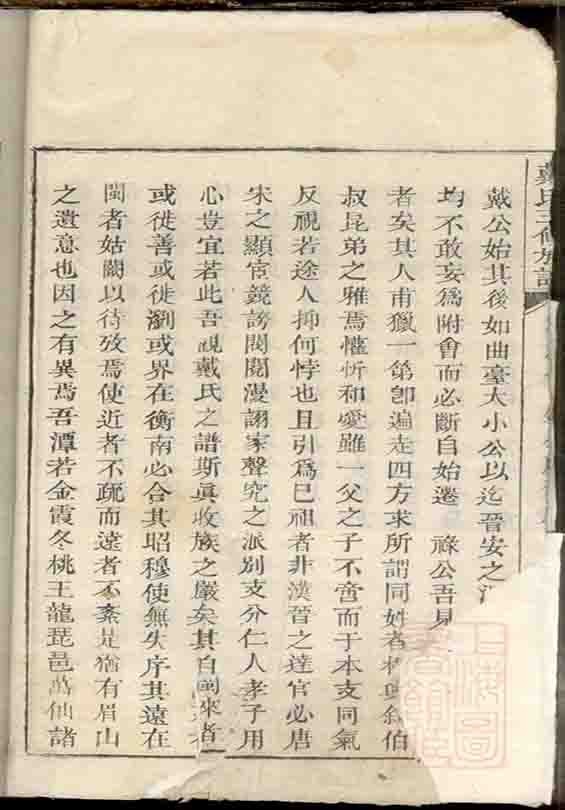 戴氏三修族譜
戴公始其後如曲臺大小公以迄晉安之
均不敢妄爲附會而必斷自始遷 祿公吾見
者矣其人甫獵一第卽遍走四方求所謂同姓者 敘伯
叔昆弟之雅焉懽忻和愛雖一父之子不啻而于本支同氣
反視若途人抑何悖也且引爲巳祖者非漢晉之達官必唐
宋之顯宦競謗閥閱漫詡家聲究之派别支分仁人孝子用
心豈宜若此吾視戴氏之譜斯眞收族之嚴矣其自閩來者
或徙善或徙瀏或界在衡南必合其昭穆使無失序其遠在
閩者姑闕以待攷焉使近者不疏而遠者不紊是猶有眉山
之遺意也因之有異焉吾潭若金霞冬桃王龍琵琶萬仙諸
上海圖書館藏